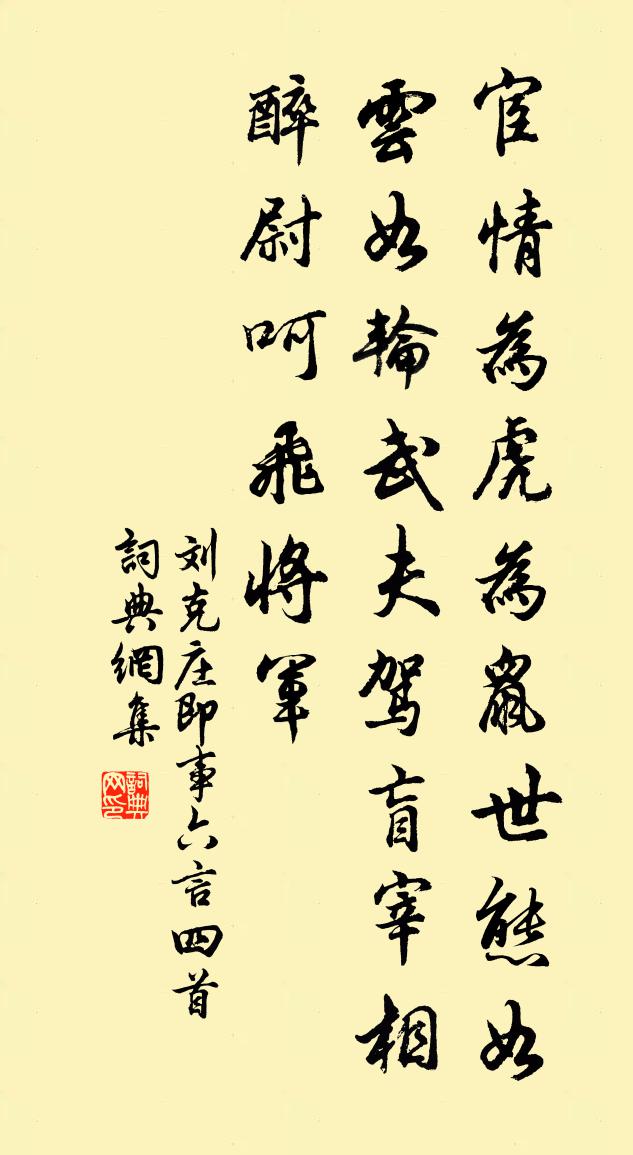 宦情為虎為鼠世態如
雲如輪武夫駕盲宰相
醉尉呵飛將軍
刘克庄即事六言四首
詞典網集
詞典网印